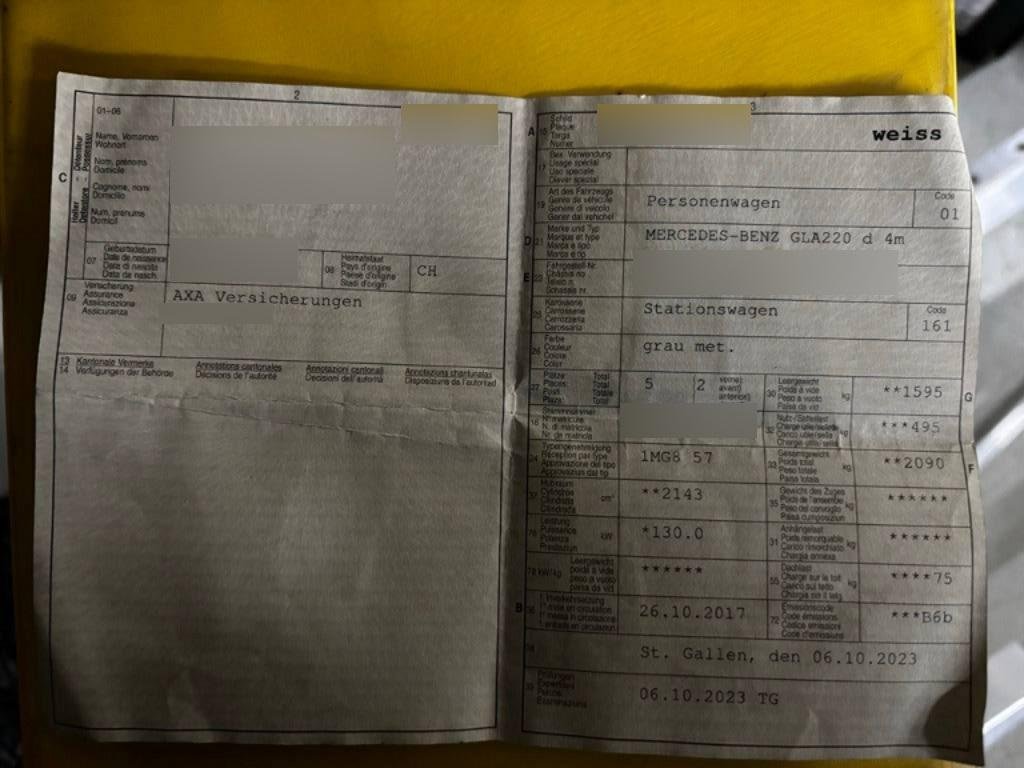 2
01-06
C
Halter - Détenteur
Detentore - Possessur
Name, Vornamen
Wohnort
Nom, prénoms
Domicile
Cognome, nomi
Domicilio
Num, prenums
Domicil
07
Geburtsdatum
Date de naissance
Data di nascita
Data da nasch.
08
Heimatstaat
Pays d'origine
Paese d'origine
Stadi d'origin
CH
09
Versicherung
Assurance
Assicurazione
Assicuranza
AXA Versicherungen
13 Kantonale Vermerke
14 Verfügungen der Behörde
Annotations cantonales
Décisions de l'autorité
Annotazioni cantonali
Decisioni dell'autorità
Annotaziuns chantunalas
Disposiziuns da l'autoritad
3
A
Schild
Plaque
Targa
Numer
weiss
17
Bes. Verwendung
Usage spécial
Uso speciale
Diever spezial
19
Art des Fahrzeugs
Genre de véhicule
Genere di veicolo
Gener dal vehichel
Personenwagen
Code
01
D
21
Marke und Typ
Marque et type
Marca e tipo
Marca e tip
MERCEDES-BENZ GLA220 d 4m
E
23
Fahrgestell-Nr.
Châssis no
Telaio n.
Schassis nr.
25
Karosserie
Carrosserie
Carrozzeria
Carossaria
Stationswagen
Code
161
26
Farbe
Couleur
Colore
Color
grau met.
27
Plätze: Total
Places: Total
Posti: Totale
Plazs: Total
5
2
vorne)
avant)
anteriori)
30
Leergewicht
Poids à vide
Peso a vuoto
Paisa da vid
kg
**1595
G
18
Stammnummer
N° matricule
N. di matricola
Nr. da matricla
32
Nutz-/Sattellast
Charge utile/sellette
Carico utile/sella
Chargia utila/sella
kg
***495
24
Typengenehmigung
Réception par type
Approvazione del tipo
Approvaziun dal tip
1MG8 57
33
Gesamtgewicht
Poids total
Peso totale
Paisa totala
kg
**2090
F
37
Hubraum
Cylindrée
Cilindrata
Cilindrada
cm³
**2143
35
Gewicht des Zuges
Poids de l'ensemble
Peso del convoglio
Paisa cumposiziun
kg
******
76
Leistung
Puissance
Potenza
Prestaziun
kW
*130.0
31
Anhängelast
Poids remorquable
Carico rimorchiato
Chargia annexa
kg
******
78 kW/kg
Leergewicht
poids à vide
peso a vuoto
paisa da vid
******
55
Dachlast
Charge sur le toit
Carico sul tetto
Chargia sin il tetg
kg
****75
B
36
1. Inverkehrsetzung
1re mise en circulation
1a messa in circolazione
1. entrada en circulaziun
26.10.2017
72
Emissionscode
Code émissions
Codice emissioni
Code d'emissiuns
***B6b
38
St. Gallen, den 06.10.2023
39
Prüfungen
Expertises
Perizie
Examinaziuns
06.10.2023 TG